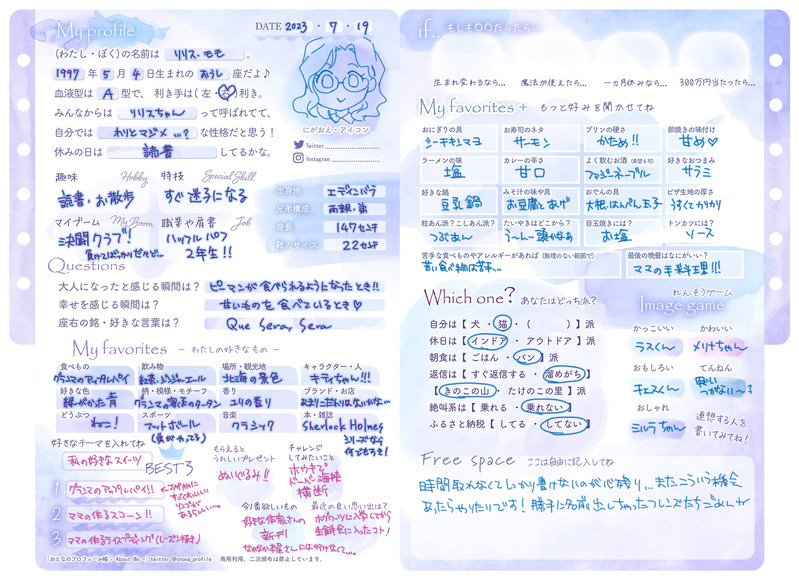 My profile
DATE 2023・7・19
(わたし・ぼく)の名前は リリス・モモ
1997年 5月 4日生まれの おうし 座だよ♪
血液型は A 型で、 利き手は(左・右)利き。
みんなからは リリスちゃん って呼ばれてて、
自分では わりとマジメ…? な性格だと思う!
休みの日は 読書 してるかな。
にがおえ・アイコン
Twitter
Instagram
趣味 Hobby
読書・お散歩
特技 Special Skill
すぐ迷子になる
マイブーム My Boom
決闘クラブ!
負けてばっかだけど…
職業や肩書 Job
ハッフルパフ
2年生!!
出身地 エディンバラ
兄弟構成 両親・弟
身長 147センチ
靴のサイズ 22センチ
Questions
大人になったと感じる瞬間は? ピーマンが食べられるようになったとき!!
幸せを感じる瞬間は? 甘いものを食べているとき♡
座右の銘・好きな言葉は? Que Sera, Sera
My favorites - わたしの好きなもの -
食べもの
グランマのアップルパイ
飲み物
紅茶・ジンジャーエール
場所・観光地
北海の景色
キャラクター・人
キティちゃん!!!
好きな色
緑がかった青
柄・模様・モチーフ
グランマの家のタータン
香り
ユリの香り
ブランド・お店
あまりこだわりはないかな
どうぶつ
ねこ!
スポーツ
フットボール
(弟がやってる)
音楽
クラシック
本・雑誌
Sherlock Holmes
シリーズなら
何でもすき!
好きなテーマを入れてね
私の好きなスイーツ
BEST 3
1 グランマのアップルパイ!!
2 ママの作るスコーン!!
3 ママの作るライスプディング(レーズン抜き)
もらえると
うれしいプレゼント
ぬいぐるみ!!
チャレンジ
してみたいこと
ホウキで
ドーバー海峡
横断
今1番欲しいもの
好きな作家さんの
新刊
なかなか本屋さんには行けなくて…
最近の良い思い出は?
ホグワーツに入学してから
生餅食に入ったコト!
「おとなのプロフィール帳 - About Me -」twitter @otona_profile 商用利用、二次頒布は禁止しています。
if.. もしも○○だったら…
生まれ変わるなら…
魔法が使えたら…
一カ月休みなら…
300万円当たったら…
My favorites + もっと好みを聞かせてね
おにぎりの具
シーチキンマヨ
お寿司のネタ
サーモン
プリンの硬さ
かため!!
卵焼きの味付け
甘め♡
ラーメンの味
塩
カレーの辛さ
甘口
よく飲むお酒(希望も可)
ファジーネーブル
好きなおつまみ
サラミ
好きな鍋
豆乳鍋
みそ汁の味や具
お豆腐とあげ
おでんの具
大根、はんぺん、玉子
ピザ生地の厚さ
うすくてカリカリ
粒あん派?こしあん派?
つぶあん
たいやきはどこから?
う〜ん… 頭かなぁ
目玉焼きには?
お塩
トンカツには?
ソース
苦手な食べものやアレルギーがあれば(無理のない範囲で)
苦い食べ物は苦手…
最後の晩餐はなにがいい?
ママの手料理!!!
Which one? あなたはどっち派?
自分は【 犬 ・ 猫 ・ ( ) 】派
休日は【 インドア ・ アウトドア 】派
朝食は【 ごはん ・ パン 】派
返信は【 すぐ返信する ・ 溜めがち 】
【 きのこの山 ・ たけのこの里 】派
絶叫系は【 乗れる ・ 乗れない 】
ふるさと納税【 してる ・ してない 】
れんそうゲーム
Image game
かっこいい
ラスくん
かわいい
メリナちゃん
おもしろい
チェスくん
てんねん
思いつかない〜?
おしゃれ
ミルラちゃん
連想する人を
書いてみてね!
Free space ここは自由に記入してね
時間取れなくてしっかり書けないのが心残り… またこういう機会
あったらやりたいです! 勝手に名前出しちゃったフレンズたちごめんね